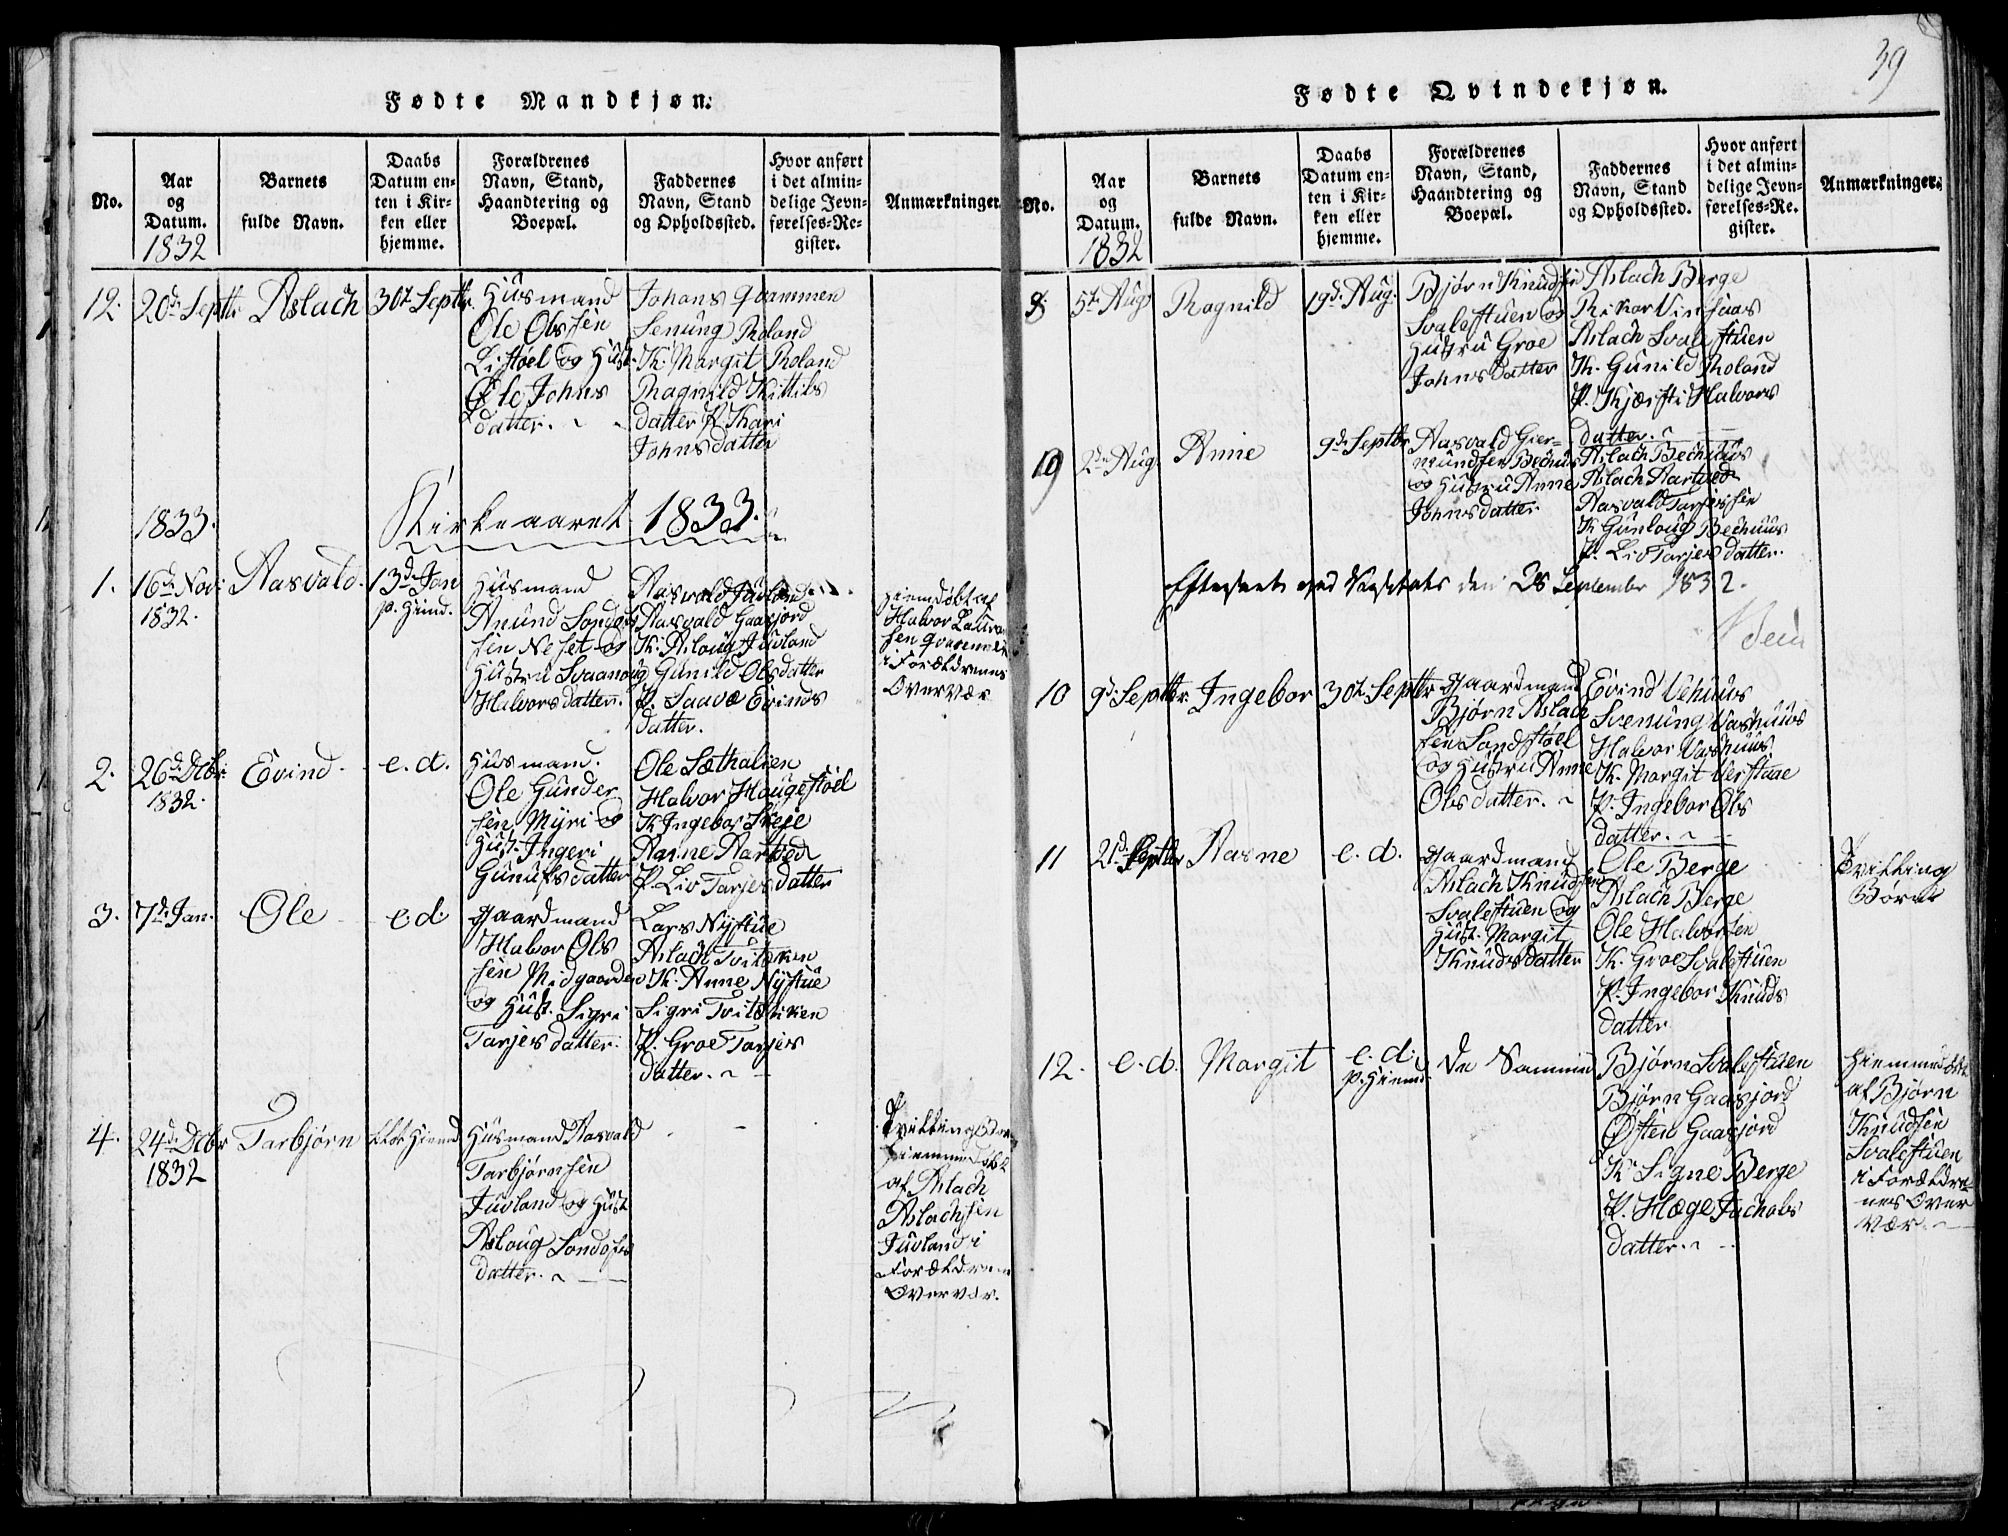 39
Fødte Mandkjøn.
No.
Aar
og
Datum.
1832
Barnets
fulde Navn.
Daabs
Datum en-
ten i Kir-
ken eller
hjemme.
Forældrenes
Navn, Stand,
Haandtering og
Boepæl.
Faddernes
Navn, Stand
og Opholdssted.
Hvor anført
i det almin-
delige Jevn-
førelses-Re-
gister.
Anmærkninger.
12.
20de Septbr
Aslach
30te Septbr.
Husmand
Ole Olssen
Listøel og Hust.
Øle Johns
datter.
Johans Qvammen
Senung Roland
K. Margit Roland
Ragnild Kittils
datter P. Kari
Johnsdatter
1833.
Kirkeaaret 1833.
1.
16de Nov:
1832.
Aasvald.
13de Jan
p. Hiind.
Husmand
Anund Sondres
sen Neset og
Hustru Svanaug
Halvorsdatter.
Aasvald Juvland
Aasvald Gaasjord
K. Aslaug Juvland
Gunild Olsdatter
P. Saave Evinds
datter.
Hiemdøbt af
Halvor
sen
i Forældrenes
Overvær
2.
26de Dcbr:
1832.
Eövind
e. d.
Husmand.
Ole Gunder
sen Myri og
Hust. Ingeri
Gunulfsdatter
Ole Sæthalien
Halvor Haugestöel
K Ingebor Skeje
Aasne Aartved
P. Liv Tarjesdatter
3.
7de Jan.
Ole
e. d.
Gaardmand
Halvor Ols
sen Midgaarden
og Hust. Sigri
Tarjesdatter.
Lars Nystue
Aslach Tvitækien
K. Anne Nystue
Sigri Tvitækien
P. Groe Tarjes
datter.
4.
24de Dcbr
1832
Tarbjörn
Husmand Aasvald
Tarbjørnsen
Juvland og Hust
Aslaug Sondres
datter.
af Aslach
Aslachsen
Juvland i
Forældrenes
Overvær.
Fødte Qvindekjøn.
No.
Aar
og
Datum.
1832
Barnets
fulde Navn.
Daabs
Datum en-
ten i Kir-
ken eller
hjemme.
Forældrenes
Navn, Stand,
Haandtering og
Boepæl.
Faddernes
Navn, Stand
og Opholdssted.
Hvor anført
i det almin-
delige Jevn-
førelses-Re-
gister.
Anmærkninger.
8.
5te Aug
Ragnild
19de Aug.
Bjørn Knudsen
Svalestuen og
Hustru Groe
Johnsdatter
Aslach Berge
Rikar Vinsaas
Aslach Svalestuen
K. Gunild Roland
P. Kjærsti Halvors
datter.
9
2de Aug
Anne
9de Septbr
Aasvald Gier-
mundsen Bechuus
og Hustru Anne
Johnsdatter
Aslach Bechuus
Aslach Aartved
Aasvald Tarjessen
K Gunloug Bechuus
P. Liv Tarjesdatter.
Efterseet ved Visitats den 28 September 1832.
10
9de Septbr.
Ingebor
30te Septbr
Gaardmand
Bjørn Aslach
sen Sandstøel
og Hustru Anne
Olsdatter.
Eövind Vehuus
Svenung Vashuus
Halvor Vashuus
K. Margit Verstaae
P. Ingebor Ols
datter.
11
21de Septbr
Aasne
e. d.
Gaardmand
Aslach Knudsen
Svalestuen og
Hust. Margit
Knudsdatter
Ole Berge
Aslach Berge
Ole Halvorsen
K. Groe Svalestuen
P. Ingebor Knuds
datter
Tvilling
Børn
12.
e. d.
Margit
e. d.
p. Hiemd.
De Samme
Bjørn Svalestuen
Bjørn Gaasjord
Østen Gaasjord
K. Signe Berge
P. Hæge Jachobs
datter.
Hiemmedøbt
af Bjørn
Knudsen
Svalestuen
i Forældre-
nes Over
vær.